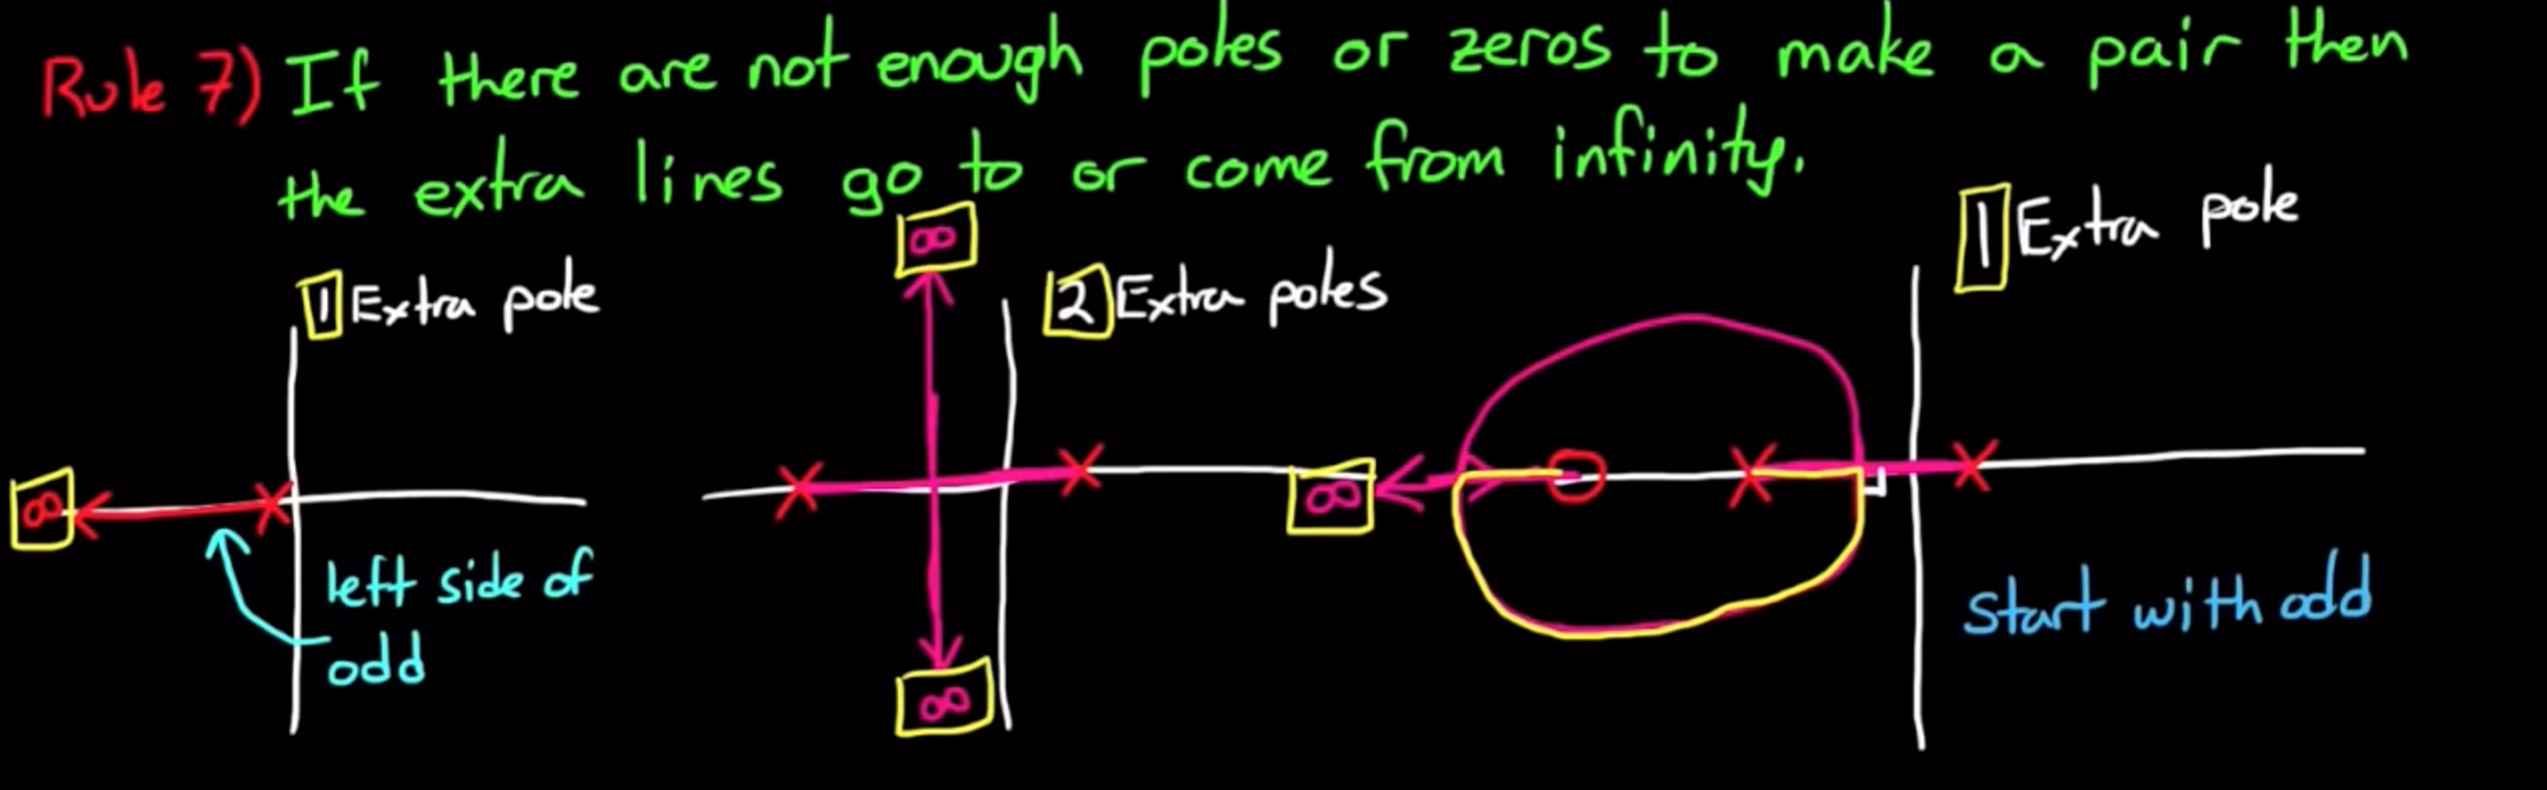 Rule 7) If there are not enough poles or zeros to make a pair then
the extra lines go to or come from infinity.
1 Extra pole
∞
left side of
odd
∞
2 Extra poles
∞
1 Extra pole
∞
Start with odd